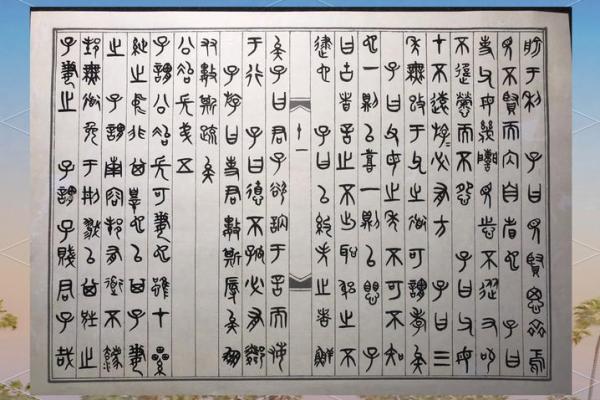 喻于利 子曰見賢思齊焉
見不賢而內自省也 子曰
事父母幾諫見志不從又敬
不違勞而不怨 子曰父母
在不遠遊遊必有方 子曰三
年無改于父之道可謂孝矣
子曰父母之年不可不知
也一則以喜一則以懼 子
曰古者言之不出恥躬之不
逮也 子曰以約失之者鮮
十一
矣子曰君子欲訥于言而敏
于行 子曰德不孤必有鄰
子游曰事君數斯辱矣朋
友數斯疏矣
公冶長弟五
子謂公冶長可妻也雖在縲
紲之中非其罪也以其子妻
之 子謂南容邦有道不廢
邦無道免于刑戮以其兄之
子妻之 子謂子賤君子哉